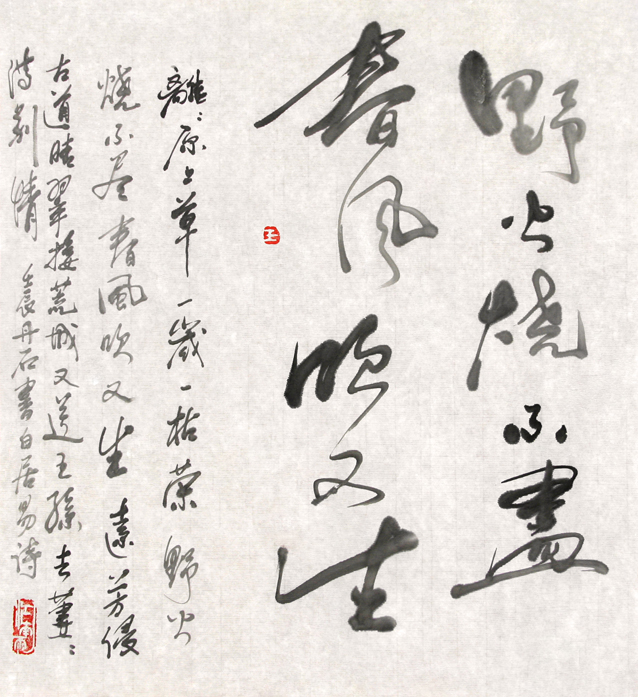 野火燒不盡
春风吹又生
離〻原上草一歲一枯榮野火
燒不尽春風吹又生遠芳侵
古道晴翠接荒城又送王孫去萋〻
满别情 壬辰丹石書白居易詩